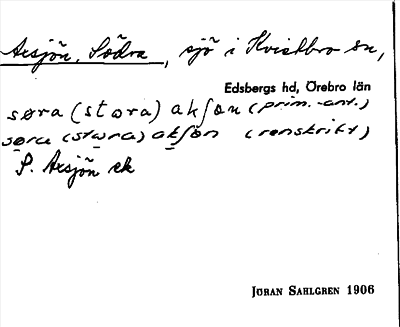 Axsjön, Södra, sjö i Kvistbro sn,
Edsbergs hd, Örebro län
søra (stora) akʃøn (prim.-ant.)
søra (stωra) akʃön (renskrift)
S. Axsjön ek
JÖRAN SAHLGREN 1906